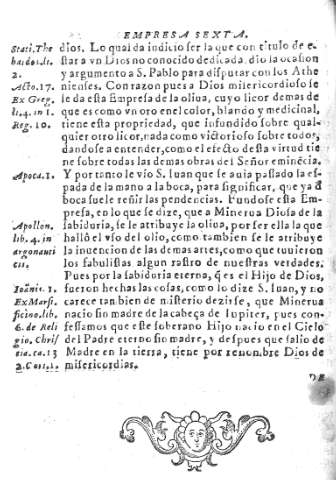 EMPRESA SEXTA.
Stati. The
bardos. li.
2.
Acto. 17.
Ex Greg
li. 4. in 1.
Reg. 10.
Apoca. 1.
Apollon.
lib. 4. in
argonauti
cis.
Ioānis. 1.
Ex Marsi.
ficino. lib.
6. de Reli
gio. Chris
ia. ca. 13
2. Cor. 1.
dios. Lo qual da indicio ser la que con titulo de e-
star a vn Dios no conocido dedicada, dio la ocasion
y argumento a S. Pablo para disputar con los Athe
nienses. Con razon pues a Dios misericordioso se
le da esta Empresa de la oliua, cuyo licor demas de
que es como vn oro en el color, blando y medicinal,
tiene esta propriedad, que infundido sobre qual-
quier otro licor, nada como victorioso sobre todos,
dandose a entender, como el efecto desta virtud tie
ne sobre todas las demas obras del Señor eminēcia.
Y por tanto le vio S. Iuan que se auia passado la es-
pada de la mano a la boca, para significar, que ya d
boca suele reñir las pendencias. Fundose esta Em-
presa, en lo que se dize, que a Minerua Diosa de la
sabiduria, se le atribuye la oliua, por ser ella la que
hallò el vso del olio, como tambien se le atribuye
la inuencion de las demas artes, como que tuuieron
los fabulistas algun rastro de nuestras verdades.
Pues por la sabiduria eterna, q̄ es el Hijo de Dios,
fueron hechas las cosas, como lo dize S. Iuan, y no
carece tambien de misterio dezirse, que Minerua
nacio sin madre de la cabeça de Iupiter, pues con-
fessamos que este soberano Hijo nacio en el Cielo
del Padre eterno sin madre, y despues que salio de
Madre en la tierra, tiene por renombre Dios de
misericordias.
DE